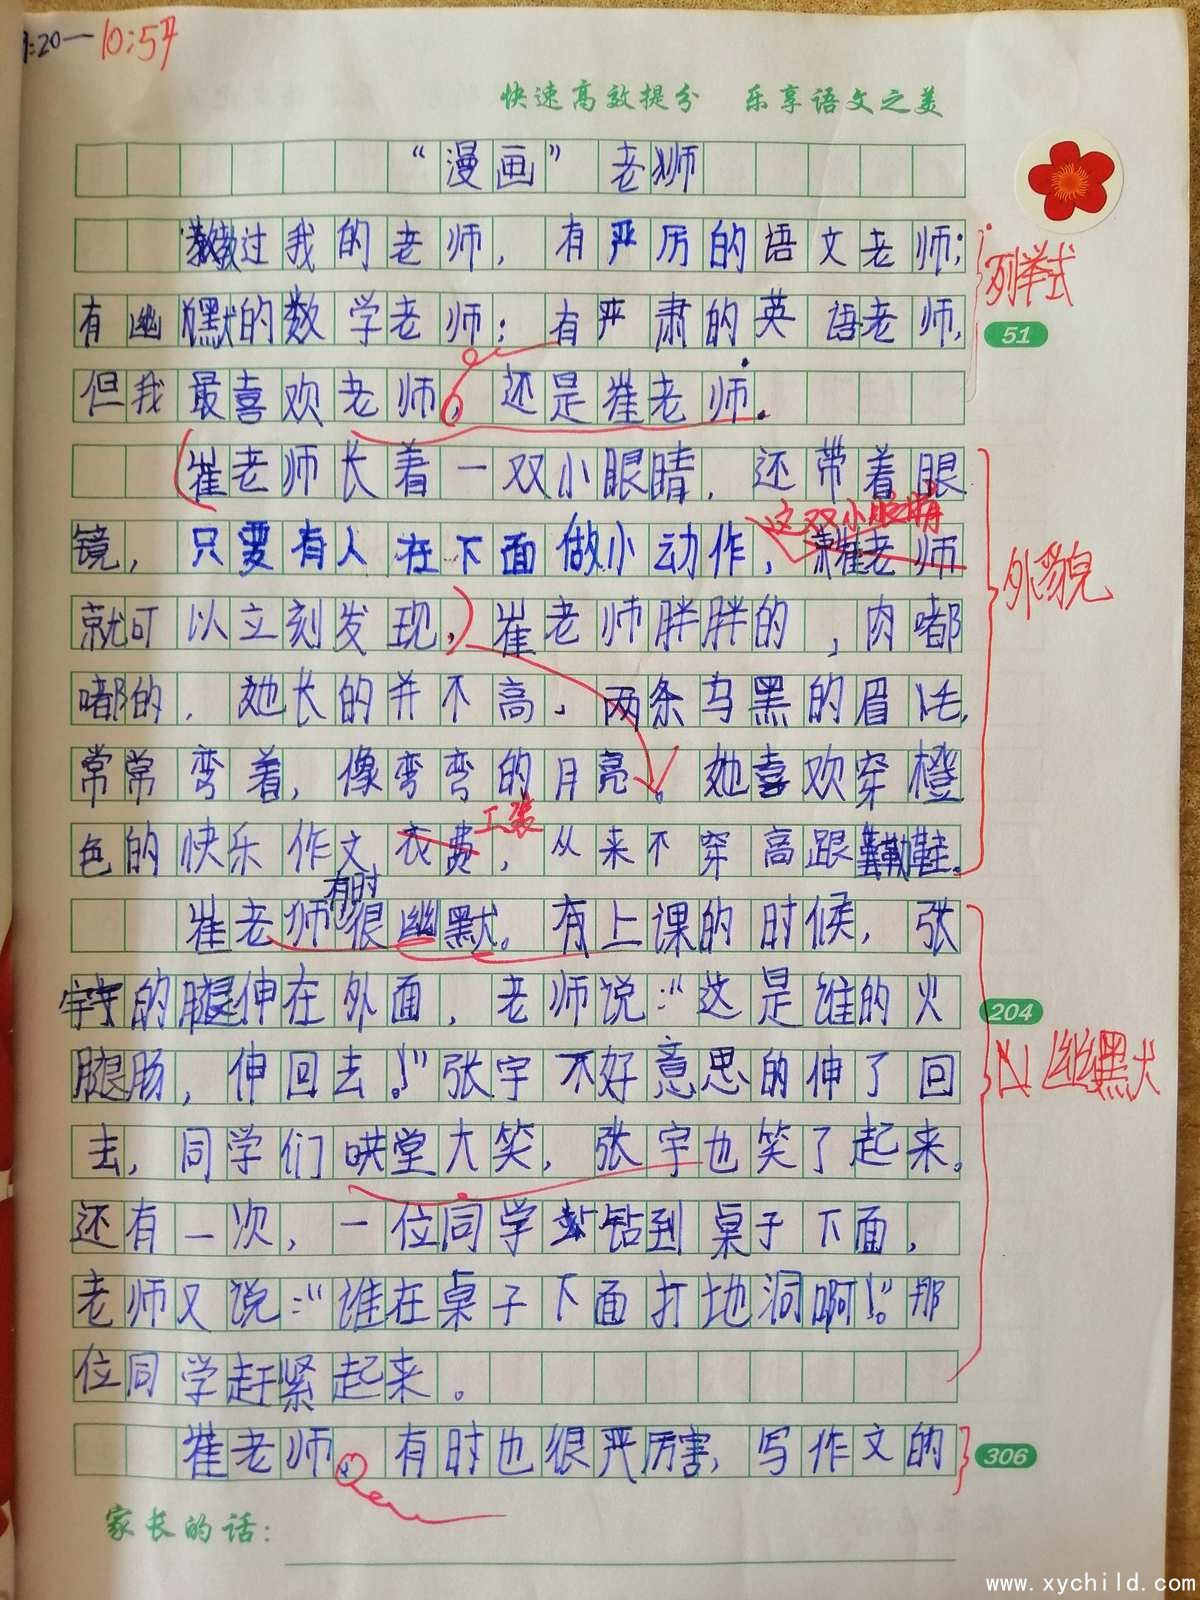 9:20—10:57
快速高效提分 乐享语文之美
“漫画”老师
教过我的老师，有严厉的语文老师；
列举式
有幽默的数学老师；有严肃的英语老师，
51
但我最喜欢老师，还是崔老师。
崔老师长着一双小眼睛，还带着眼
这双小眼睛
镜，只要有人在下面做小动作，崔老师
外貌
就可以立刻发现，崔老师胖胖的，肉嘟
嘟的，她长的并不高，两条乌黑的眉毛，
常常弯着，像弯弯的月亮。她喜欢穿橙
工装
色的快乐作文衣费，从来不穿高跟鞋。
有时
崔老师很幽默。有上课的时候，张
宇的腿伸在外面，老师说：“这是谁的火
204
腿肠，伸回去！”张宇不好意思的伸了回
幽默
去，同学们哄堂大笑，张宇也笑了起来。
还有一次，一位同学钻到桌子下面，
老师又说：“谁在桌子下面打地洞啊！”。那
位同学赶紧起来。
崔老师有时也很严厉害，写作文的
306
家长的话：
www.xychild.com